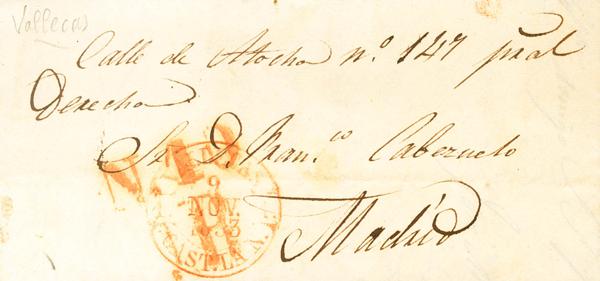 Vallecas
Calle de Atocha nº 147 pral
Derecha
Sr D. Fran.co Cabezuelo
Madrid
9
NOV.
1853
CAST. LA N.